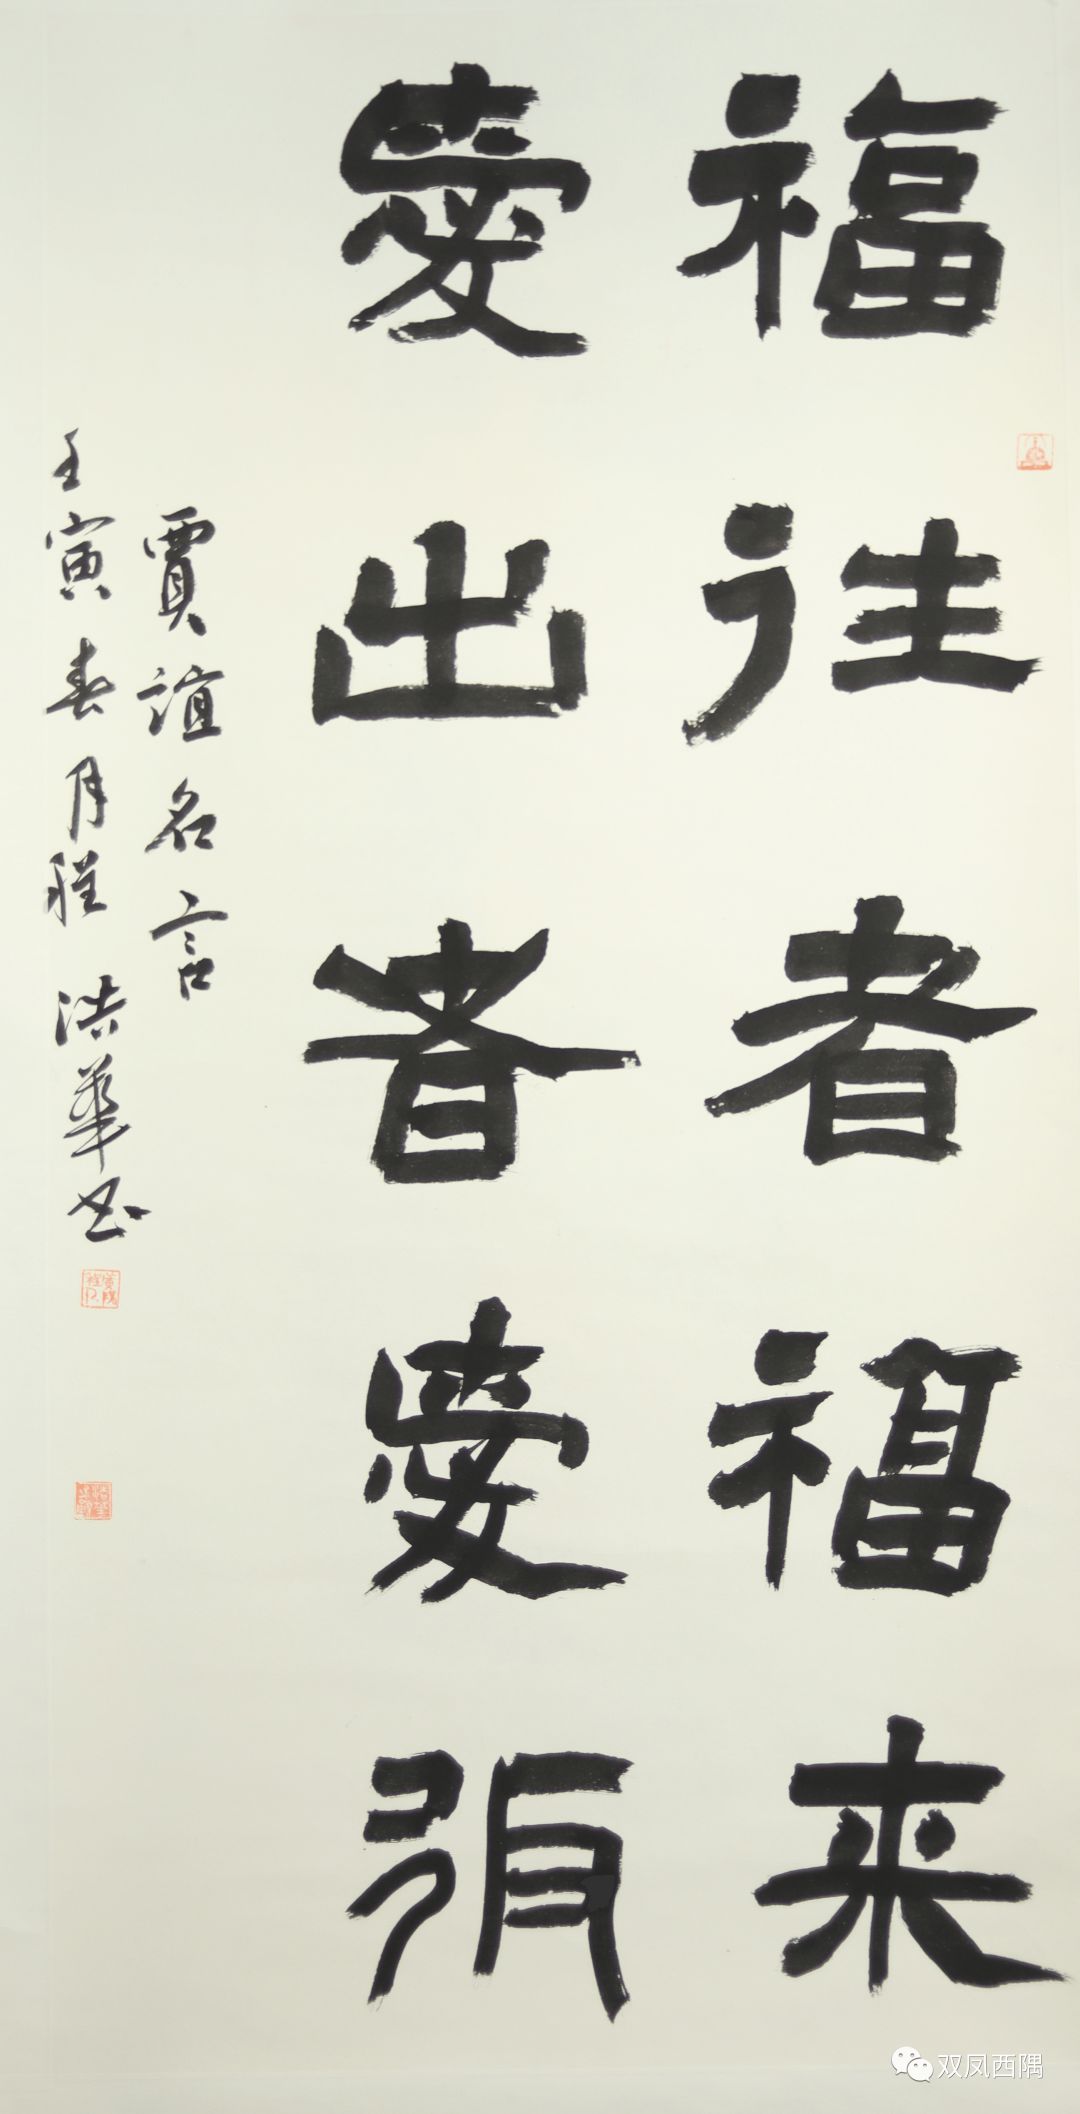 福往者福来
愛出者愛返
賈誼名言
壬寅春月程浩華书
双凤西隅